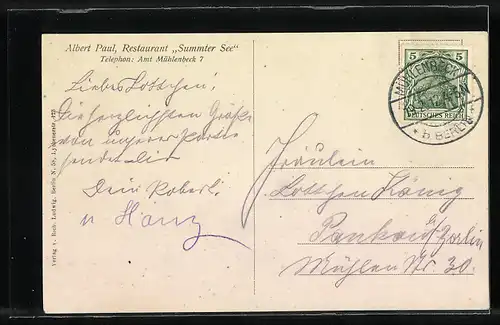 Albert Paul, Restaurant „Summter See“
Telephon: Amt Mühlenbeck 7
Liebes Lottchen!
Die herzlichsten Grüße
von unserer Partie
sendet Dir
Dein Robert
u Hanz
Verlag v. Rob. Ludwig, Berlin N. 58,
Fräulein
Lottchen König
Pankow b/Berlin
Mühlen Str. 30.
5 5
DEUTSCHES REICH
MÜHLENBECK
* b. BERLIN